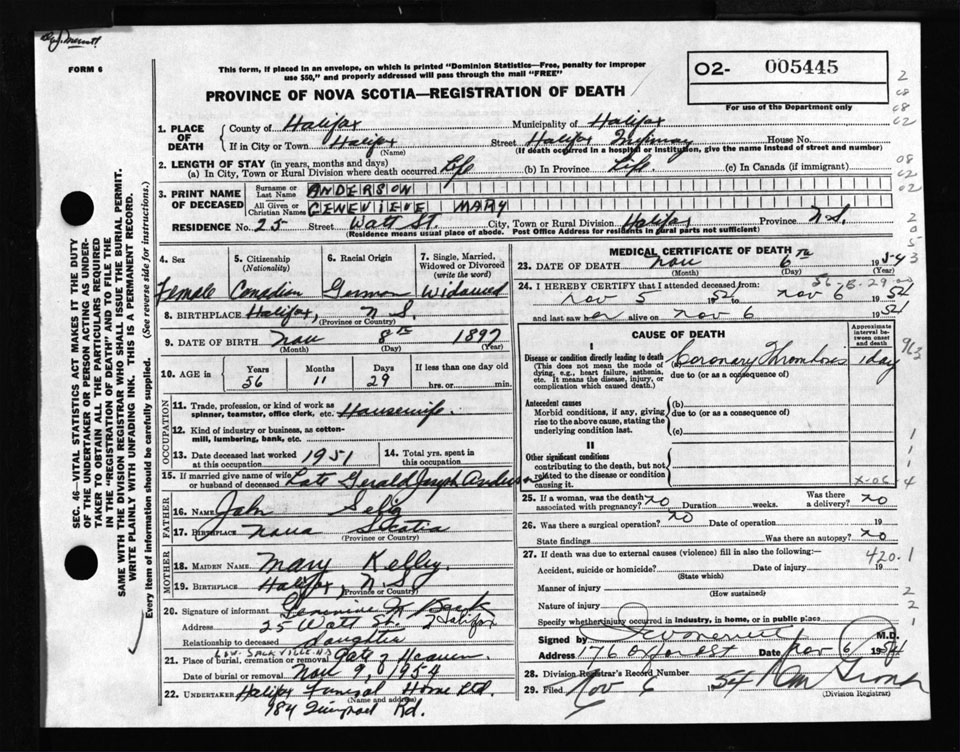 FORM 6
This form, if placed in an envelope, on which is printed "Dominion Statistics—Free, penalty for improper
use $50," and properly addressed will pass through the mail "FREE"
O2- 005445
For use of the Department only
PROVINCE OF NOVA SCOTIA—REGISTRATION OF DEATH
1. PLACE OF DEATH
County of Halifax Municipality of Halifax
If in City or Town Halifax Street Halifax Infirmary House No.
(Name) (If death occurred in a hospital or institution, give the name instead of street and number)
2. LENGTH OF STAY (in years, months and days)
(a) In City, Town or Rural Division where death occurred Life (b) In Province Life. (c) In Canada (if immigrant)
3. PRINT NAME OF DECEASED
Surname or Last Name ANDERSON
All Given or Christian Names GENEVIEVE MARY
RESIDENCE No. 25 Street Watt St. City, Town or Rural Division Halifax Province N.S.
(Residence means usual place of abode. Post Office Address for residents in rural parts not sufficient)
4. Sex
Female
5. Citizenship (Nationality)
Canadian
6. Racial Origin
German
7. Single, Married, Widowed or Divorced (write the word)
Widowed
8. BIRTHPLACE Halifax, N.S.
(Province or Country)
9. DATE OF BIRTH Nov 8th 1897
(Month) (Day) (Year)
10. AGE in Years Months Days If less than one day
56 11 29 hrs. or min.
OCCUPATION
11. Trade, profession, or kind of work as spinner, teamster, office clerk, etc. Housewife.
12. Kind of industry or business, as cotton-mill, lumbering, bank, etc.
13. Date deceased last worked at this occupation 1951
14. Total yrs. spent in this occupation
15. If married give name of wife or husband of deceased Late Gerald Joseph Anderson
FATHER
16. Name John Selig
17. Birthplace Nova Scotia
(Province or Country)
MOTHER
18. MAIDEN NAME Mary Kelly.
19. BIRTHPLACE Halifax, N.S.
(Province or Country)
20. Signature of informant
Address 25 Watt St. Halifax
Relationship to deceased Daughter
LOW. SACKVILLE N.S
21. Place of burial, cremation or removal Gate of Heaven
Date of burial or removal Nov 9, 1954
22. UNDERTAKER Halifax Funeral Home Ltd.
(Name and address)
Rd.
MEDICAL CERTIFICATE OF DEATH
23. DATE OF DEATH Nov 6th 1954
(Month) (Day) (Year)
24. I HEREBY CERTIFY that I attended deceased from:
Nov 5 to Nov 6
and last saw her alive on Nov 6
CAUSE OF DEATH
Approximate interval between onset and death
I
Disease or condition directly leading to death
(This does not mean the mode of dying, e.g., heart failure, asthenia, etc. It means the disease, injury, or complication which caused death.)
Coronary Thrombosis 1 day
due to (or as a consequence of)
Antecedent causes
Morbid conditions, if any, giving rise to the above cause, stating the underlying condition last.
(b)
due to (or as a consequence of)
(c)
II
Other significant conditions
contributing to the death, but not related to the disease or condition causing it.
25. If a woman, was the death associated with pregnancy? No Duration weeks. Was there a delivery? No
26. Was there a surgical operation? No Date of operation 19
State findings Was there an autopsy? No
27. If death was due to external causes (violence) fill in also the following:—
420.1
Accident, suicide or homicide? Date of injury 19
(State which)
Manner of injury
(How sustained)
Nature of injury
Specify whether injury occurred in industry, in home, or in public place
Signed by M.D.
Address 176 Oxford St Date Nov 6 1954
28. Division Registrar's Record Number
29. Filed Nov 6 1954
(Division Registrar)
SEC. 46—VITAL STATISTICS ACT MAKES IT THE DUTY
OF THE UNDERTAKER OR PERSON ACTING AS UNDER-
TAKER TO OBTAIN ALL THE PARTICULARS REQUIRED
IN THE "REGISTRATION OF DEATH" AND TO FILE THE
SAME WITH THE DIVISION REGISTRAR WHO SHALL ISSUE THE BURIAL PERMIT.
WRITE PLAINLY WITH UNFADING INK. THIS IS A PERMANENT RECORD.
Every item of information should be carefully supplied. (See reverse side for instructions.)